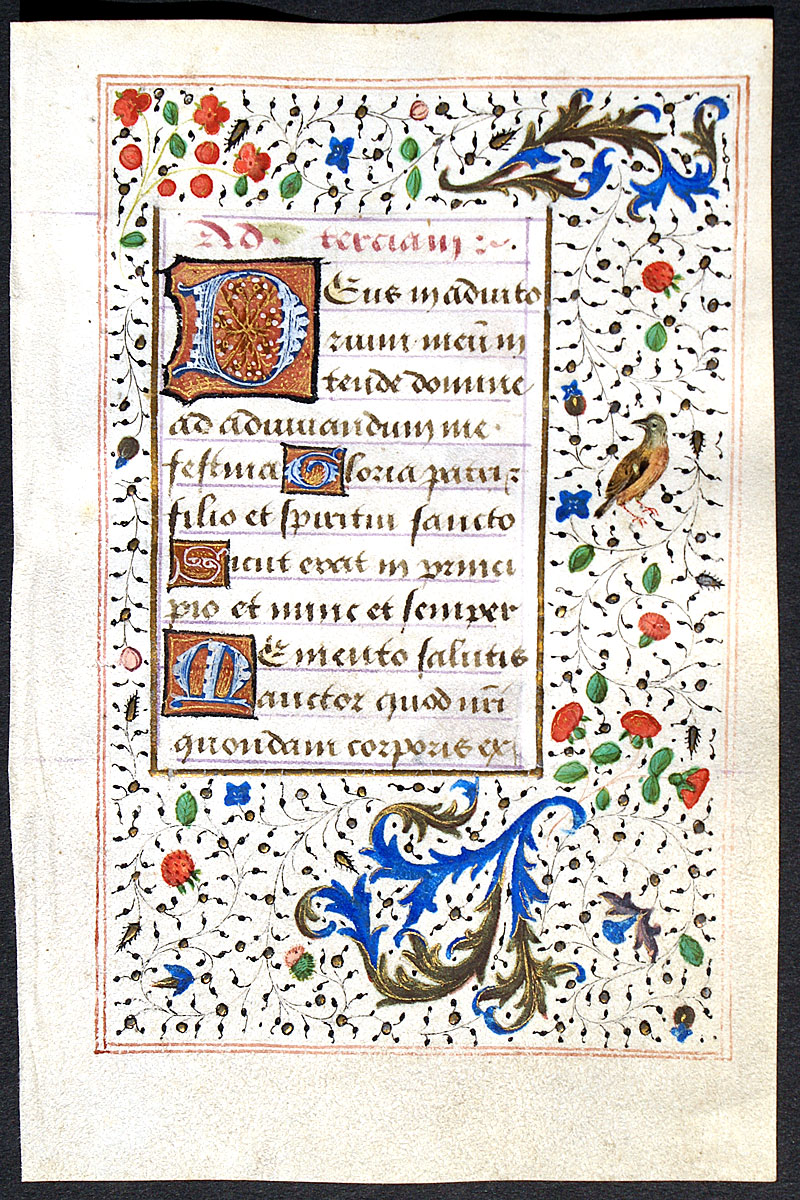 Ad terciam
Deus in adiuto
rium meū in
tende domine
ad adiuuandum me
festina Gloria patri
filio et spiritui sancto
Sicut erat in princi
pio et nunc et semper
Memento salutis
auctor quod nr̄i
quondam corporis ex